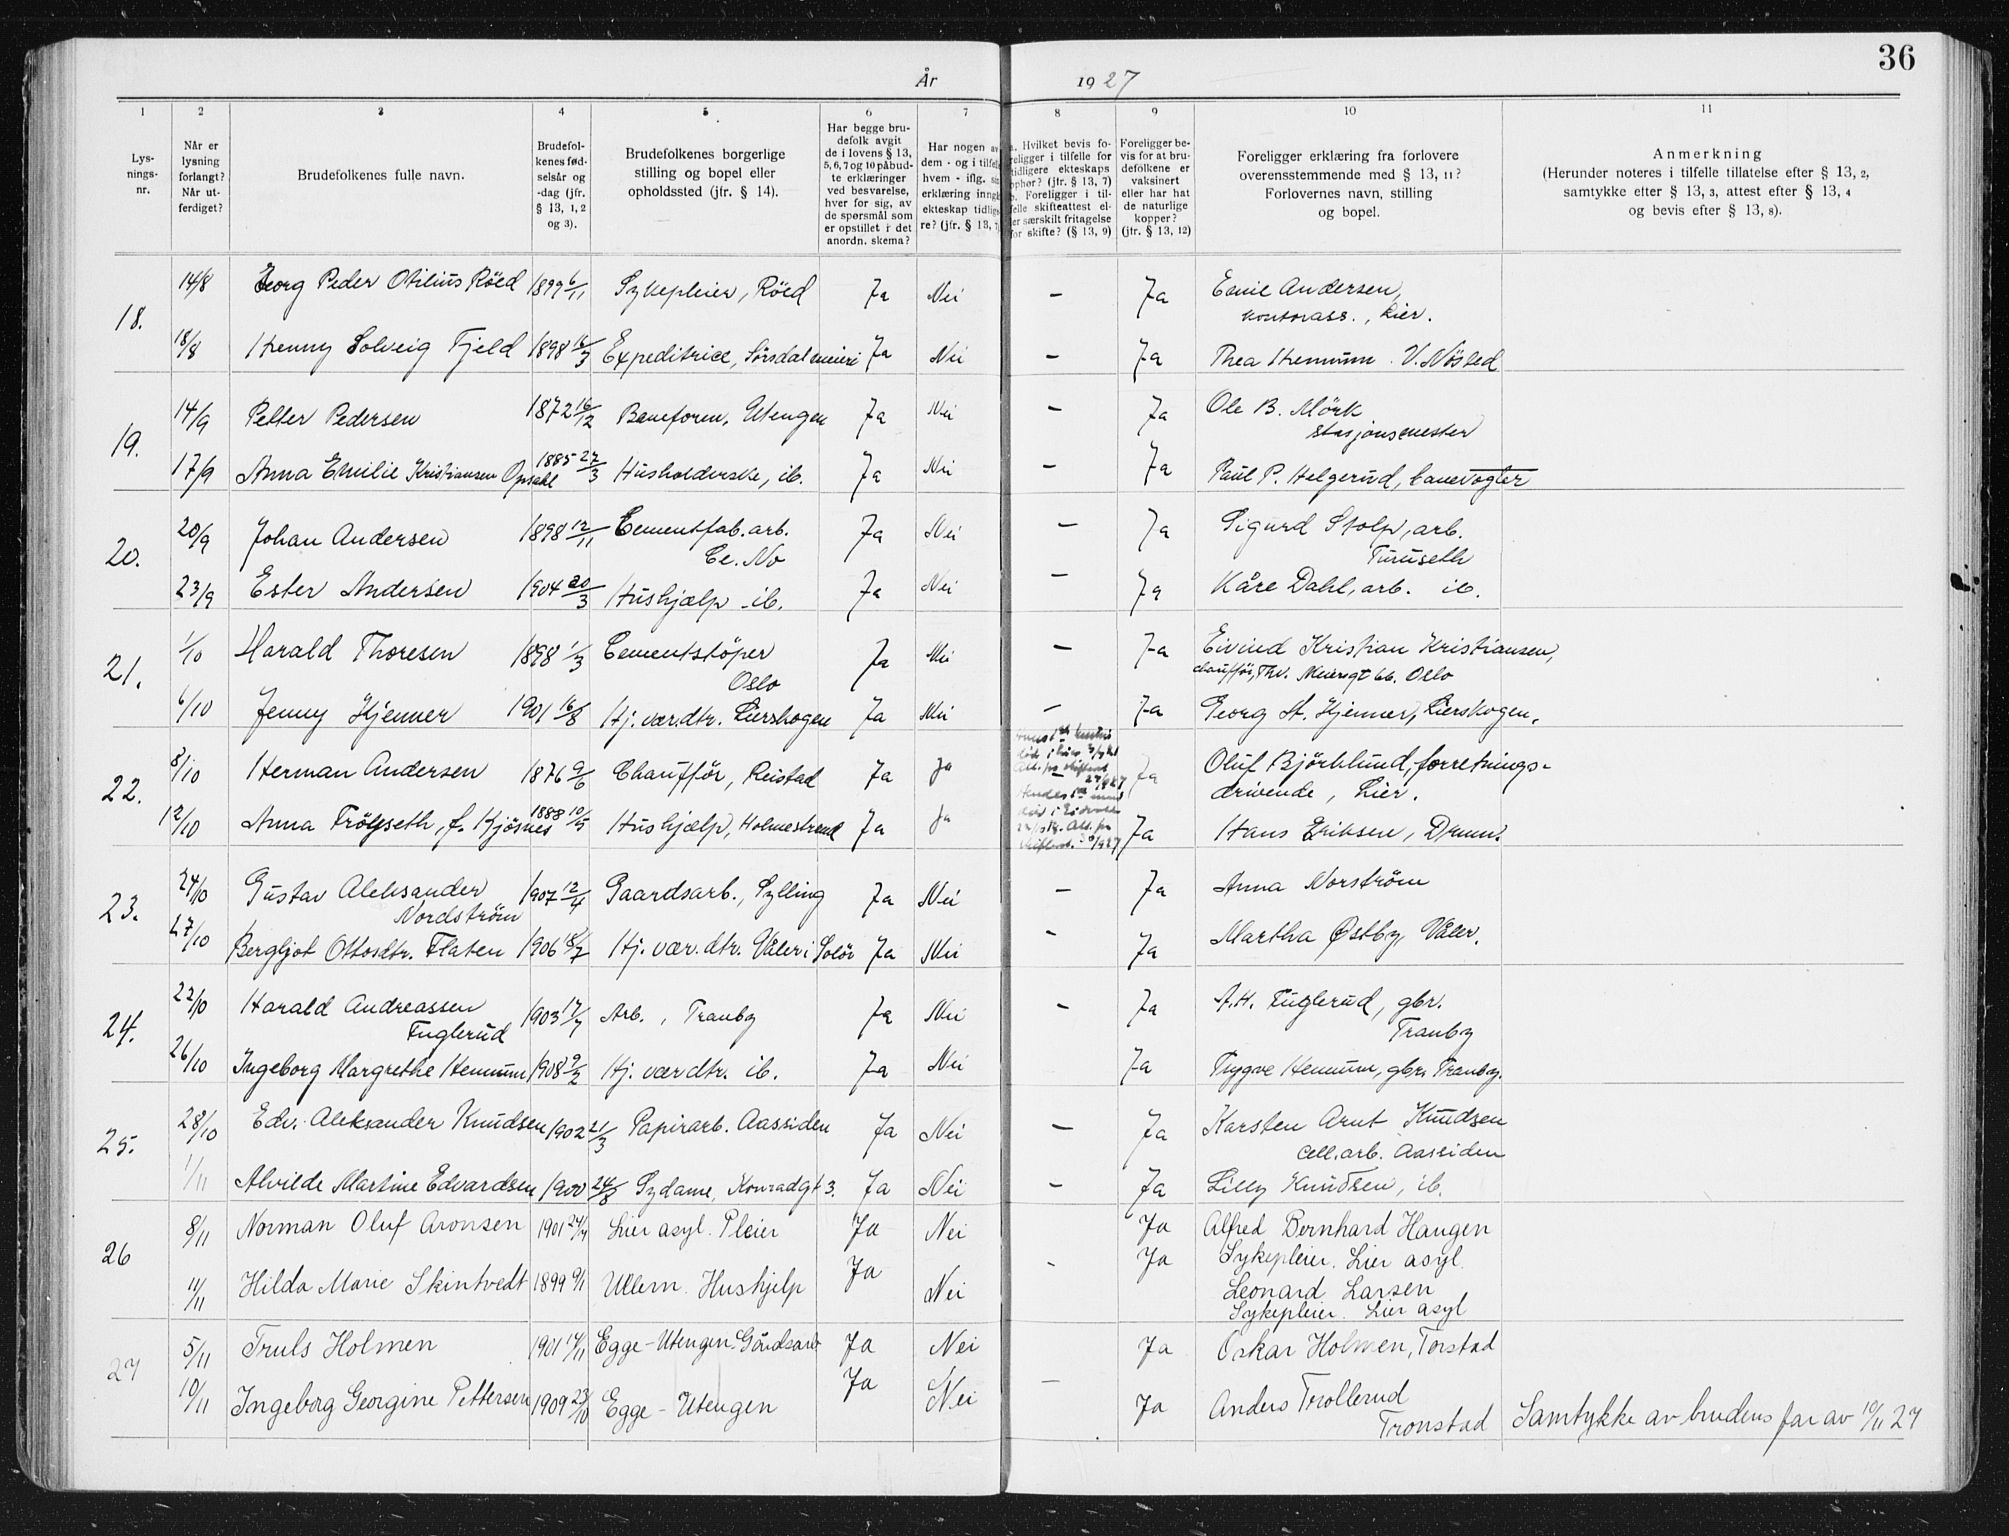 36
År 1927
1 2 3 4 5 6 7 8 9 10 11
Lys-
nings-
nr.
Når er
lysning
forlangt?
Når ut-
ferdiget?
Brudefolkenes fulle navn.
Brudefol-
kenes fød-
selsår og
-dag (jfr.
§ 13, 1, 2
og 3).
Brudefolkenes borgerlige
stilling og bopel eller
opholdssted (jfr. § 14).
Har begge bru-
defolk avgit
de i lovens § 13,
5, 6, 7 og 10 påbud-
te erklæringer
ved besvarelse,
hver for sig, av
de spørsmål som
er opstillet i det
anordn. skema?
Har nogen av
dem - og i tilfelle
hvem - iflg. sin
erklæring inngått
ekteskap tidlige-
re? (jfr. § 13, 7)
a. Hvilket bevis fo-
religger i tilfelle for
tidligere ekteskaps
ophør? (jfr. § 13, 7)
b. Foreligger i til-
felle skifteattest el-
ler særskilt fritagelse
for skifte? (§ 13, 9)
Foreligger be-
vis for at bru-
defolkene er
vaksinert
eller har hat
de naturlige
kopper?
(jfr. § 13, 12)
Foreligger erklæring fra forlovere
overensstemmende med § 13, 11?
Forlovernes navn, stilling
og bopel.
Anmerkning
(Herunder noteres i tilfelle tillatelse efter § 13, 2,
samtykke efter § 13, 3, attest efter § 13, 4
og bevis efter § 13, 8).
18.
14/8 Georg Peder Otilius Röed 1899 6/11 Sykepleier, Röed Ja Nei – Ja Emil Andersen,
kontorass., Lier.
18/8 Henny Solveig Fjeld 1898 16/3 Expeditrice, Sörsdal meieri Ja Nei – Ja Thea Hennum. V. Nösted
19.
14/9 Petter Pedersen 1872 16/12 Baneform. Utengen Ja Nei – Ja Ole B. Mörk
stasjonsmester
17/9 Anna Emilie Kristiansen Opsahl 1885 27/3 Husholderske, ib. Ja Nei – Ja Paul P. Helgerud, banevogter
20.
20/9 Johan Andersen 1898 12/11 Cementfab. arb. Ja Nei – Ja Sigurd Stolp, arb.
Ce. No Turuseth
23/9 Ester Andersen 1904 20/3 Hushjælp ib. Ja Nei – Ja Kåre Dahl, arb. ib.
21.
1/10 Harald Thoresen 1898 1/3 Cementstöper Ja Nei – Ja Eivind Kristian Kristiansen,
Oslo chaufför, Thv. Meiersgt 66. Oslo
6/10 Jenny Hjenner 1901 16/8 Hj. vær. dtr. Lierskogen Ja Nei – Ja Georg A. Hjenner, Lierskogen.
22.
8/10 Herman Andersen 1876 9/6 Chaufför, Reistad Ja Ja – Ja Oluf Björklund, forretnings-
drivende, Lier.
12/10 Anna Frölyseth, f. Kjösnes 1888 10/5 Hushjælp, Holmestrand Ja Ja Ja Hans Eriksen, Drmn.
23.
24/10 Gustav Aleksander 1907 12/4 Gaardsarb., Sylling Ja Nei – Ja Anna Norström
Nordström
27/10 Bergljot Ottosdtr. Flaten 1906 18/7 Hj. vær. dtr. Våler i Solör Ja Nei – Ja Martha Østby, Våler.
24.
22/10 Harald Andreassen 1903 17/7 Arb., Tranby Ja Nei – Ja A.H. Fuglerud, gbr.
Fuglerud Tranby
26/10 Ingeborg Margrethe Hennum 1908 9/2 Hj. vær dtr. ib. Ja Nei Ja Trygve Hennum, gbr. Tranby.
25.
28/10 Edv. Aleksander Knudsen 1902 21/3 Papirarb. Aassiden Ja Nei – Ja Karsten Arnt Knudsen
cell. arb. Aassiden
1/11 Alvilde Martine Edvardsen 1900 24/8 Sydame, Konradgt 3. Ja Nei – Ja Lilly Knudsen, ib.
26
8/11 Norman Oluf Aronsen 1901 24/4 Lier asyl. Pleier Ja Nei Ja Alfred Bernhard Haugen
Ja Sykepleier. Lier asyl.
11/11 Hilda Marie Skintvedt 1899 9/1 Ullern. Hushjelp Ja Nei - Leonard Larsen
Sykepleier. Lier asyl
27
5/11 Truls Holmen 1901 14/11 Egge-Utengen. Gårdsarb Ja Nei Ja Oskar Holmen, Torstad
10/11 Ingeborg Georgine Pettersen 1909 23/10 Egge-Utengen Ja Nei – Ja Anders Trollerud
Tronstad Samtykke av brudens far av 10/11 27